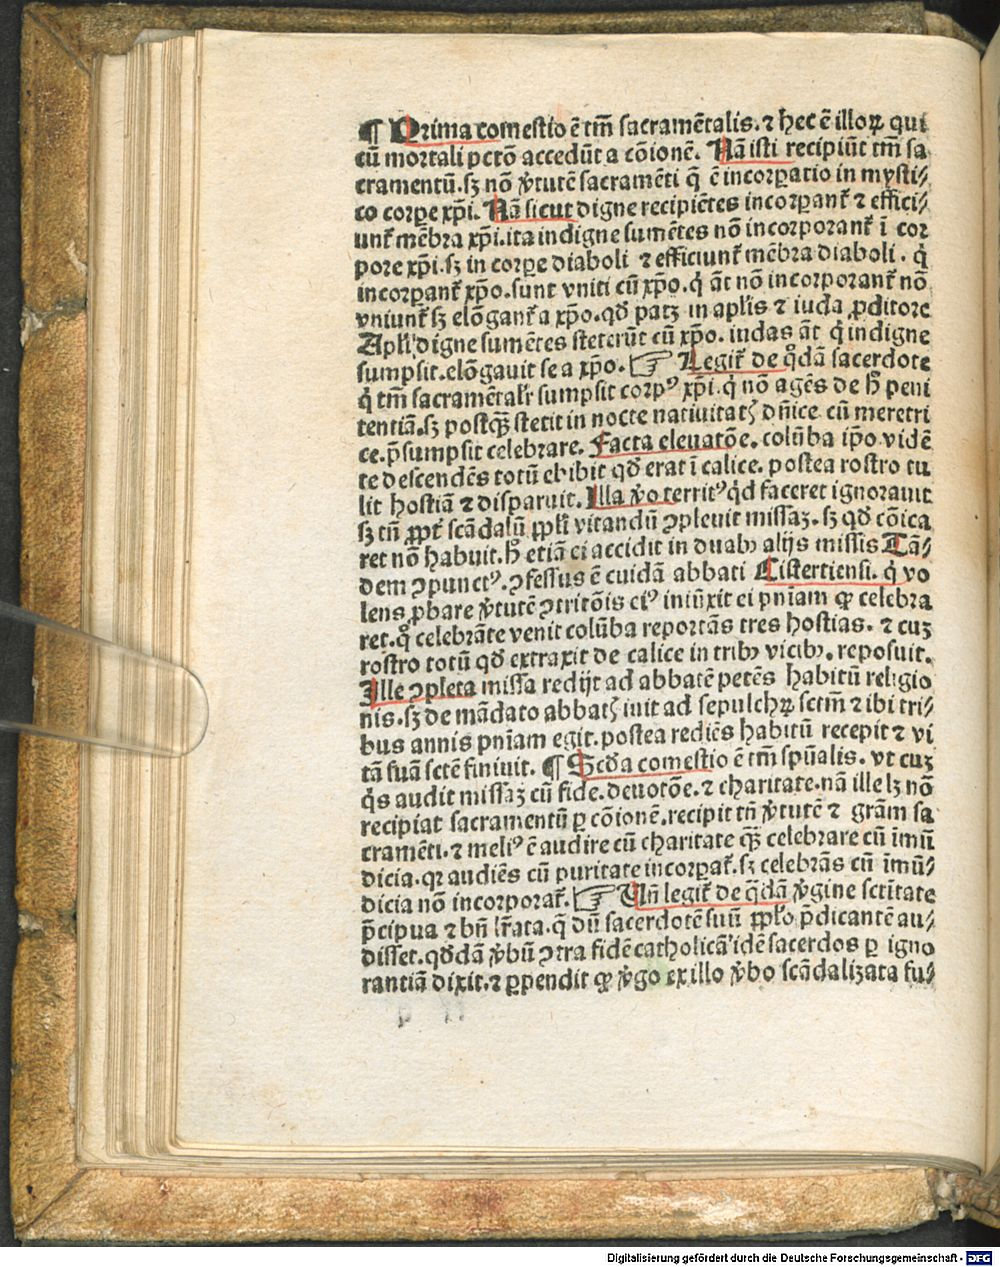 ¶ Prima comestio ē tm̄ sacramētalis. ⁊ hec ē illoꝝ qui
cū mortali pctō accedūt a cōionē. Nā isti recipiūt tm̄ sa
cramentū. sꝫ nō v̓tutē sacramēti q̄ ē incorꝑatio in mysti⸗
co corꝑe xp̄i. Nā sicut digne recipiētes incorꝑanť ⁊ effici⸗
unť mēbra xp̄i. ita indigne sumētes nō incorporanť ī cor
pore xp̄i. sꝫ in corꝑe diaboli ⁊ efficiunť mēbra diaboli. q̇
incorꝑanť xp̄o. sunt vniti cū xp̄o. q̇ āt nō incorporanť nō
vniunť sꝫ elōganť a xp̄o. qd̄ patꝫ in apl̄is ⁊ iuda ꝓditore
Apl̄i digne sumētes steterūt cū xp̄o. iudas āt q̇ indigne
sumpsit. elōgauit se a xp̄o. ☞ Legiť de qͦdā sacerdote
q̇ tm̄ sacramētalr̄ sumpsit corpꝰ xp̄i. q̇ nō agēs de h̄ peni
tentiā. sꝫ postqꝫ̄ stetit in nocte natiuitatꝭ dn̄ice cū meretri
ce. p̄sumpsit celebrare. Facta eleuatōe. colūba ip̄o vidē
te descendēs totū ebibit qd̄ erat ī calice. postea rostro tu
lit hostiā ⁊ disparuit. Illa v̓o territꝰ qd̓ faceret ignorauit
sꝫ tn̄ ꝓpť scādalū ꝓpl̓i vitandū ꝯpleuit missaꝫ. sꝫ qd̄ cōica
ret nō habuit. h̄ etiā ei accidit in duabꝫ alijs missis Tā⸗
dem ꝯpunctꝰ. ꝯfessus ē cuidā abbati Cistertiensi. q̇ vo
lens ꝓbare v̓tutē ꝯtritōis eiꝰ iniūxit ei pn̄iam ꝙ celebra
ret. qͦ celebrāte venit colūba reportās tres hostias. ⁊ cuꝫ
rostro totū qd̄ extraxit de calice in tribꝫ vicibꝫ. reposuit.
Ille ꝯpleta missa redijt ad abbatē petēs habitū religio
nis. sꝫ de mādato abbatꝭ iuit ad sepulchꝝ sctm̄ ⁊ ibi tri⸗
bus annis pn̄iam egit. postea rediēs habitū recepit ⁊ vi
tā suā sctē finiuit. ¶ Scd̓a comestio ē tm̄ sp̄ualis. vt cuꝫ
q̇s audit missaꝫ cū fide. deuotōe. ⁊ charitate. nā ille lꝫ nō
recipiat sacramentū ꝑ cōionē. recipit tn̄ v̓tutē ⁊ grām sa
cramēti. ⁊ meliꝰ ē audire cū charitate qꝫ̄ celebrare cū īmū
dicia. qꝛ audiēs cū puritate incorꝑať. sꝫ celebrās cū īmū⸗
dicia nō incorporať. ☞ Un̄ legiť de q̄dā v̓gine sctītate
p̄cipua ⁊ bn̄ lr̄ata. q̄ dū sacerdotē suū ꝓpl̓o p̄dicantē au⸗
disset. qd̄dā v̓bū ꝯtra fidē catholicā idē sacerdos ꝑ igno
rantiā dixit. ⁊ ꝑpendit ꝙ v̓go ex illo v̓bo scādalizata fu⸗
Digitalisierung gefördert durch die Deutsche Forschungsgemeinschaft - DFG